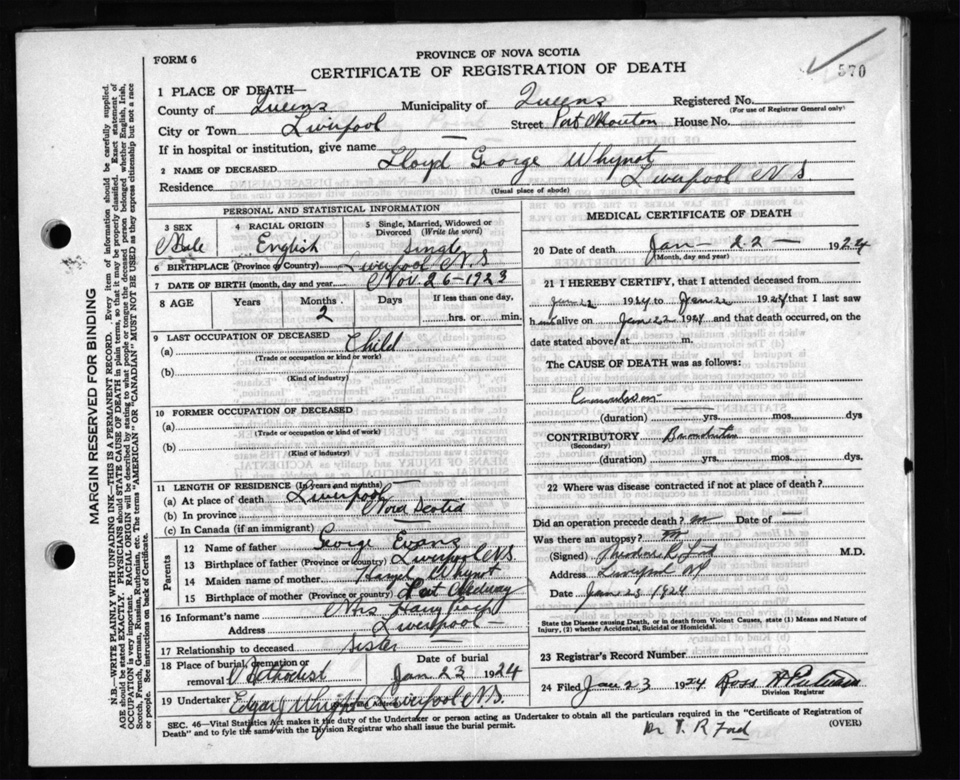 FORM 6
PROVINCE OF NOVA SCOTIA
CERTIFICATE OF REGISTRATION OF DEATH
570
1 PLACE OF DEATH—
County of Queens Municipality of Queens Registered No.
(For use of Registrar General only)
City or Town Liverpool Street Port Mouton House No.
If in hospital or institution, give name —
2 NAME OF DECEASED Lloyd George Whynot
Residence Liverpool N S
(Usual place of abode)
PERSONAL AND STATISTICAL INFORMATION
3 SEX 4 RACIAL ORIGIN 5 Single, Married, Widowed or Divorced (Write the word)
Male English Single
6 BIRTHPLACE (Province or Country) Liverpool N.S
7 DATE OF BIRTH (month, day and year) Nov. 26-1923
8 AGE Years Months Days If less than one day,
2 hrs. or min.
9 LAST OCCUPATION OF DECEASED
(a) Child
(Trade or occupation or kind or work)
(b)
(Kind of industry)
10 FORMER OCCUPATION OF DECEASED
(a)
(Trade or occupation or kind of work)
(b)
(Kind of industry)
11 LENGTH OF RESIDENCE (In years and months)
(a) At place of death Liverpool
(b) In province Nova Scotia
(c) In Canada (if an immigrant)
Parents
12 Name of father George Evans
13 Birthplace of father (Province or country) Liverpool NS
14 Maiden name of mother Whynot
15 Birthplace of mother (Province or country) Port Medway
16 Informant's name Mrs Harry
Address Liverpool —
17 Relationship to deceased Sister
18 Place of burial, cremation or removal Methodist
Date of burial
Jan 23 1924
19 Undertaker Edgar Whynot Liverpool N.S.
MEDICAL CERTIFICATE OF DEATH
20 Date of death Jan — 22 — 1924
(Month, day and year)
21 I HEREBY CERTIFY, that I attended deceased from
Jan 22 1924 to Jan 22 1924 that I last saw
him alive on Jan 22 1924 and that death occurred, on the
date stated above, at m.
The CAUSE OF DEATH was as follows:
Convulsions
(duration) yrs. mos. dys
CONTRIBUTORY
(Secondary)
(duration) yrs. mos. dys.
22 Where was disease contracted if not at place of death?
Did an operation precede death? no Date of —
Was there an autopsy? no
(Signed) M.D.
Address Liverpool NS
Date Jan 23 1924
State the Disease causing Death, or in death from Violent Causes, state (1) Means and Nature of Injury, (2) whether Accidental, Suicidal or Homicidal.
23 Registrar's Record Number
24 Filed Jan 23 1924 Ross
Division Registrar
SEC. 46—Vital Statistics Act makes it the duty of the Undertaker or person acting as Undertaker to obtain all the particulars required in the "Certificate of Registration of
Death" and to fyle the same with the Division Registrar who shall issue the burial permit.
(OVER)
Dr T. R Ford
MARGIN RESERVED FOR BINDING
N.B.—WRITE PLAINLY WITH UNFADING INK—THIS IS A PERMANENT RECORD. Every item of information should be carefully supplied.
AGE should be stated EXACTLY. PHYSICIANS should STATE CAUSE OF DEATH in plain terms, so that it may be properly classified. Exact statement of
OCCUPATION is very important. RACIAL ORIGIN will be described by stating to what people or tongue the deceased person belonged whether English, Irish,
Scotch, French, German, Russian, Ruthenian, etc. The terms "AMERICAN" OR "CANADIAN" MUST NOT BE USED as they express citizenship but not a race
or people. See instructions on back of Certificate.